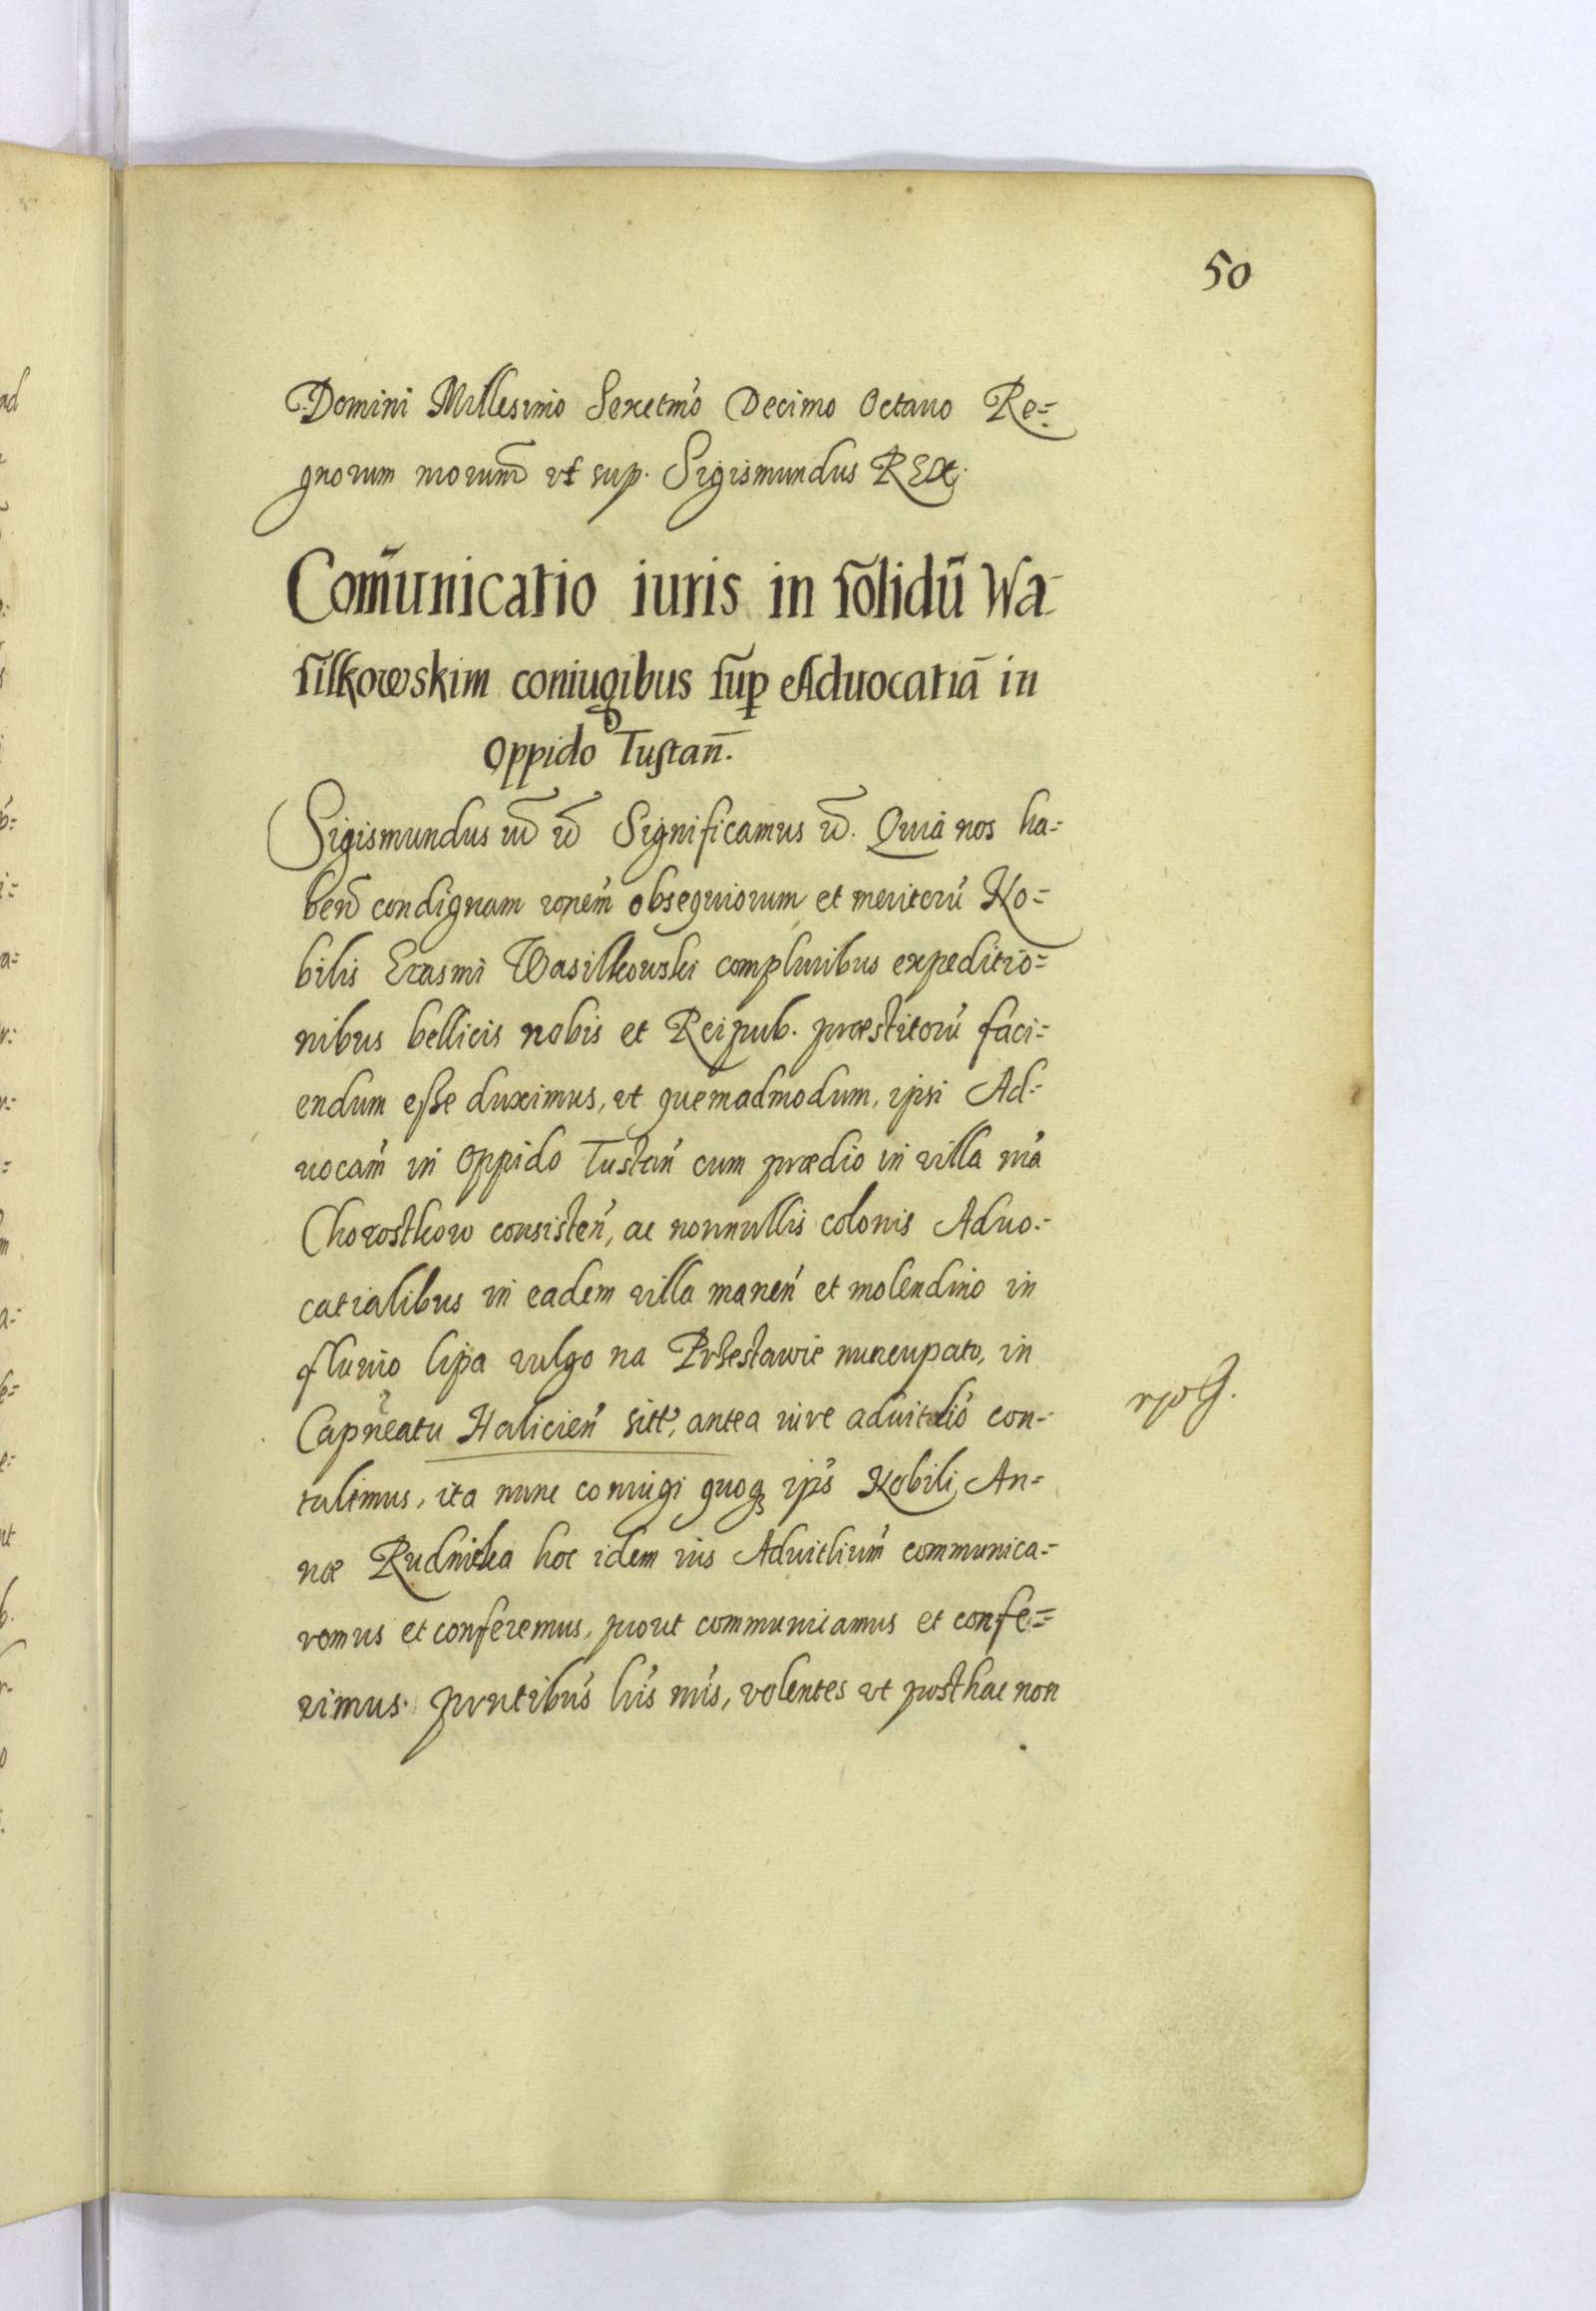 50
Domini Millesimo Sexetmo Decimo Octauo Re=
gnorum nrorum vt sup. Sigismundus REX.
Com̄unicatio iuris in solidū Wa-
silkowskim coniugibus sup Aduocatiā in
Oppido Tustan̄.
Sigismundus Significamus Quia nos ha=
ben condignam ronem obsequiorum et meritorū No=
bilis Erasmi Wasilkowski compluribus expeditio=
nibus bellicis nobis et Reipub. præstitorū faci=
endum esse duximus, vt quemadmodum, ipsi Ad=
uocam in Oppido Tustan cum prædio in villa nra
Chorostkow consisten, ac nonnullis colonis Aduo=
catialibus in eadem villa manen et molendino in
fluuio lipa vulgo na Przestawie nuncupato, in
Capneatu Halicien sitt, antea iure aduitalio con=
tulimus, ita nunc coniugi quoq ips Nobili An=
næ Rudnicka hoc idem ius Aduitlium communica=
remus et conferemus, prout communicamus et confe=
rimus. pnntibus lris nris, volentes vt posthac non